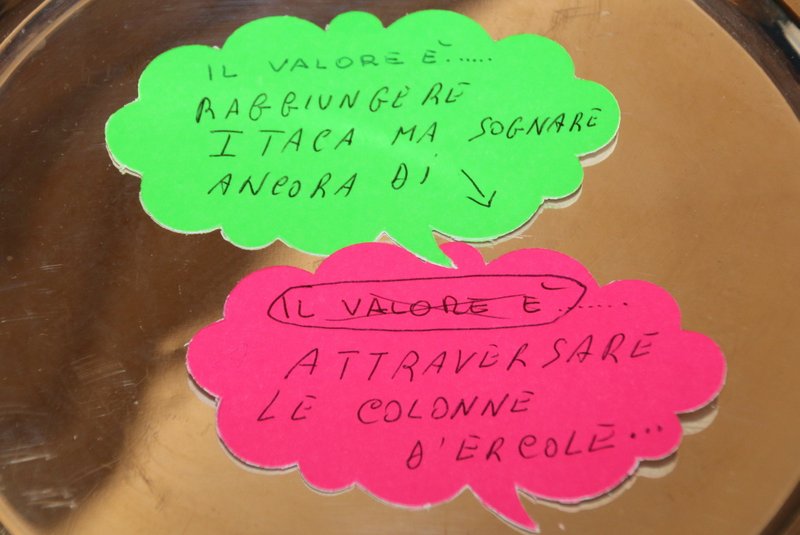 IL VALORE È......
RAGGIUNGERE
ITACA MA SOGNARE
ANCORA DI
IL VALORE È........
ATTRAVERSARE
LE COLONNE
D'ERCOLE...